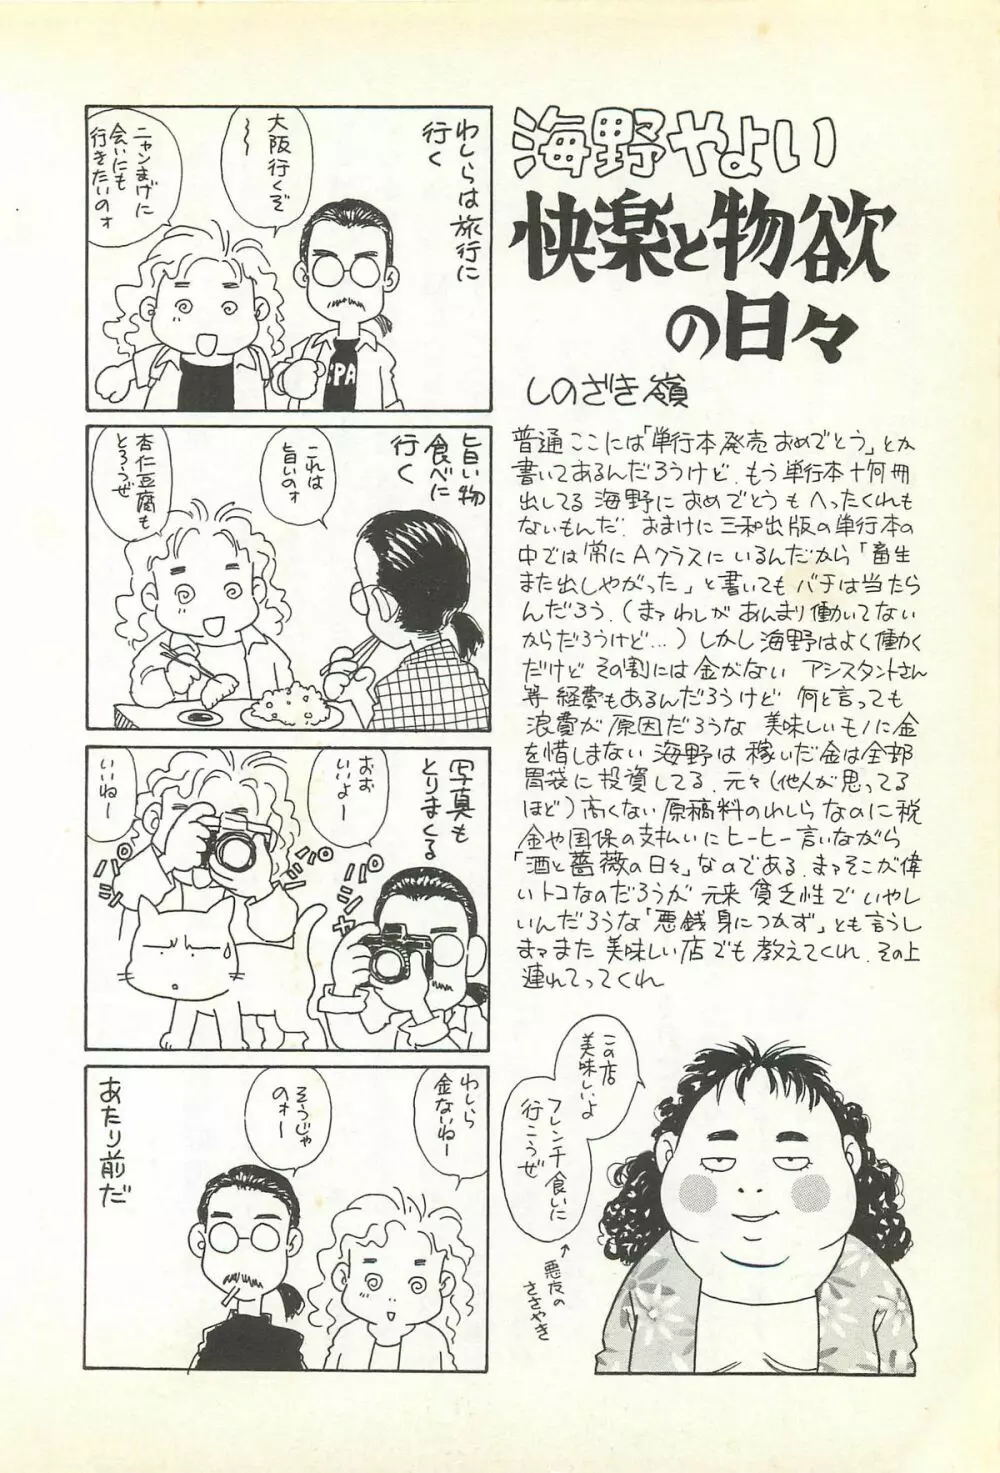 海野やよい
快楽と物欲
の日々
しのざき嶺
普通ここには「単行本発売おめでとう」とか
書いてあるんだろうけど、もう単行本十何冊
出してる海野におめでとうもへったくれも
ないもんだ。おまけに三和出版の単行本の
中では常にAクラスにいるんだから「畜生
また出しやがった」と書いてもバチは当たら
んだろう。(まァわしがあんまり働いてない
からだろうけど…)しかし海野はよく働く
だけどその割には金がない アシスタントさん
等経費もあるんだろうけど 何と言っても
浪費が原因だろうな 美味しいモノに金
を惜しまない海野は稼いだ金は全部
胃袋に投資してる。元々(他人が思ってる
ほど)高くない原稿料のわしらなのに税
金や国保の支払いにヒーヒー言いながら
「酒と薔薇の日々」なのである。まァそこが偉
いトコなのだろうが 元来貧乏性でいやし
いんだろうな「悪銭身につかず」とも言うし
まァまた美味しい店でも教えてくれ、その上
連れてってくれ
わしらは旅行に
行く
大阪行くぞ
〜
ニャンまげに
会いにも
行きたいのォ
旨い物
食べに
行く
これは
旨いのォ
杏仁豆腐も
とろうぜ
写真も
とりまくる
おお
いいよー
いいねー
パシ
パシ
パシャ
わしら
金ないねー
そうじゃ
のォー
あたり前だ
この店
美味しいよ
フレンチ食いに
行こうぜ
↑
悪友の
ささやき
SPA